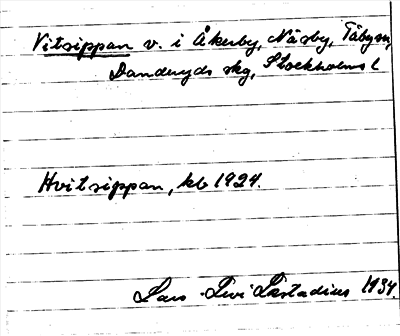 Vitsippan v. i Åkerby, Näsby, Täby sn,
Danderyds skg, Stockholms l
Hvitsippan, kb 1924.
Lars Levi Læstadius 1934.